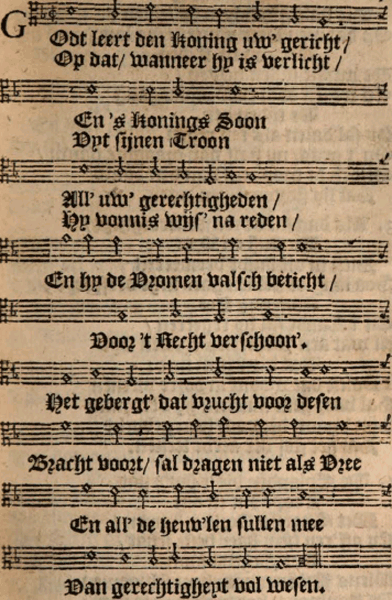 Godt leert den Koning uw' gericht /
Op dat / wanneer hy is verlicht /
En 's Konings Soon
Uyt sijnen Troon
All' uw' gerechtigheden /
Hy vonnis wijs' na reden /
En hy de Vromen valsch beticht /
Voor 't Recht verschoon'.
Het gebergt' dat vrucht voor desen
Bracht voort / sal dragen niet als Vree
En all' de heuw'len sullen mee
Van gerechtigheyt vol wesen.